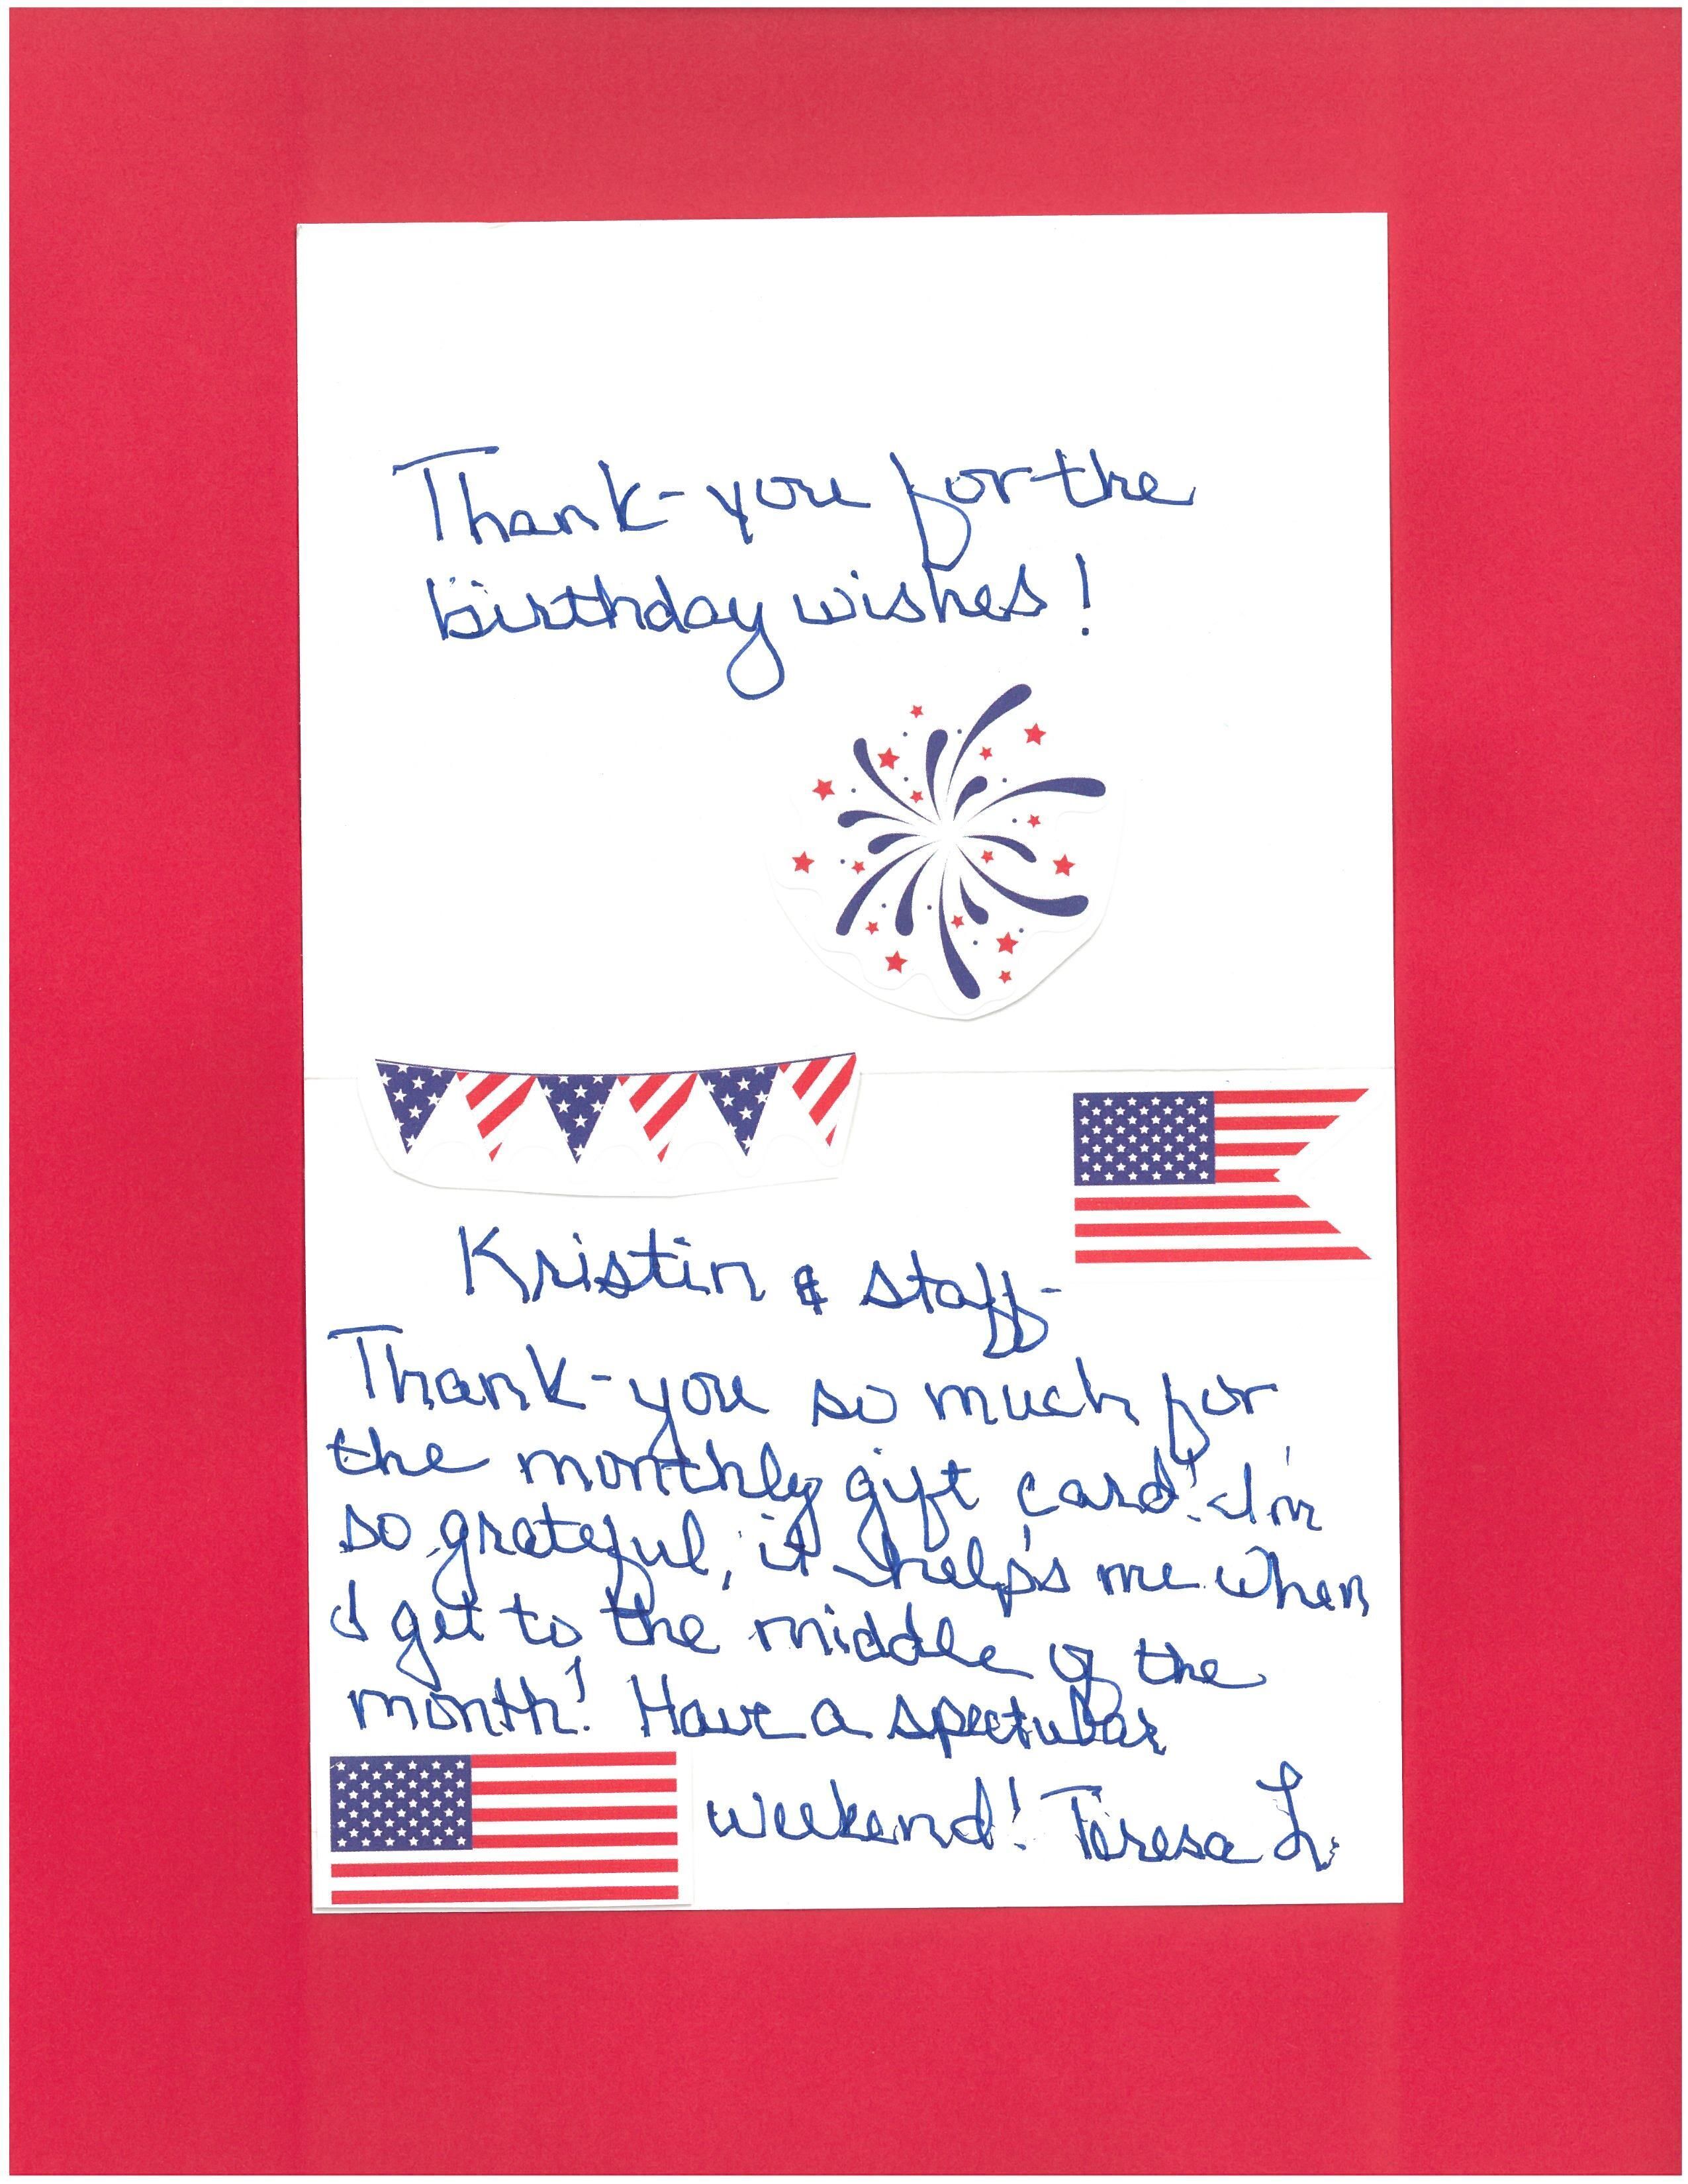 Thank-you for the
birthday wishes!
Kristin & staff-
Thank-you so much for
the monthly gift card! I'm
so grateful, it help's me when
I get to the middle of the
month! Have a spectular
weekend! Teresa L.